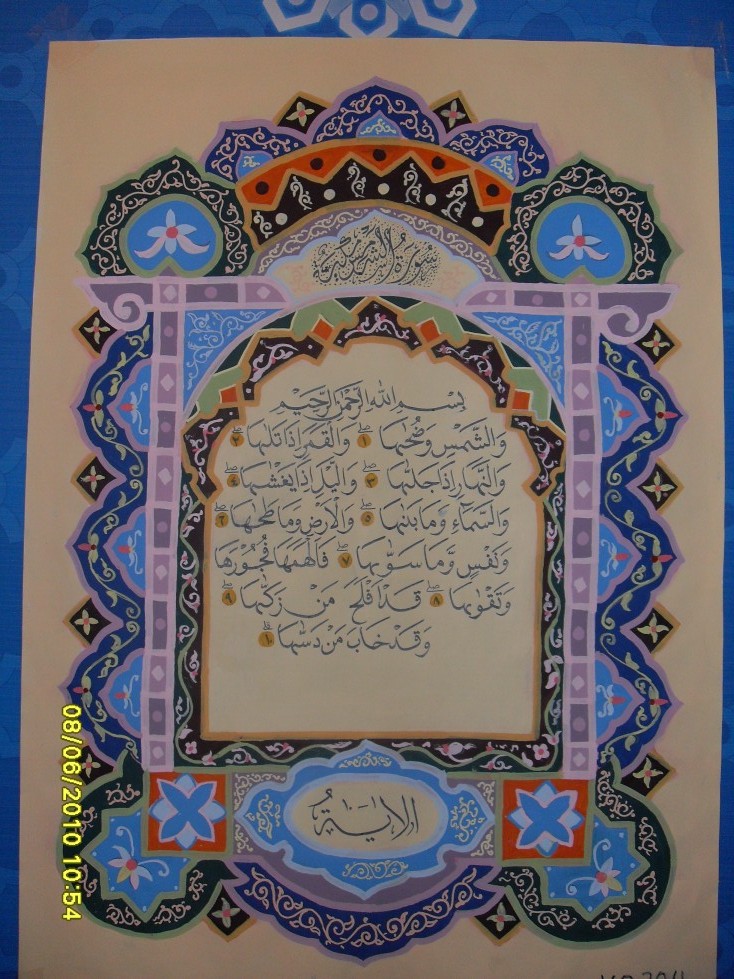 سُورَةُ الشَّمْسِ مَكِّيَّةٌ
بِسْمِ اللهِ الرَّحْمٰنِ الرَّحِيْمِ
وَالشَّمْسِ وَضُحٰىهَا ١ وَالْقَمَرِ اِذَا تَلٰىهَا ٢
وَالنَّهَارِ اِذَا جَلّٰىهَا ٣ وَالَّيْلِ اِذَا يَغْشٰىهَا ٤
وَالسَّمَاۤءِ وَمَا بَنٰىهَا ٥ وَالْاَرْضِ وَمَا طَحٰىهَا ٦
وَنَفْسٍ وَّمَا سَوّٰىهَا ٧ فَاَلْهَمَهَا فُجُوْرَهَا
وَتَقْوٰىهَا ٨ قَدْ اَفْلَحَ مَنْ زَكّٰىهَا ٩
وَقَدْ خَابَ مَنْ دَسّٰىهَا ١٠
الاية
08/06/2010 10:54